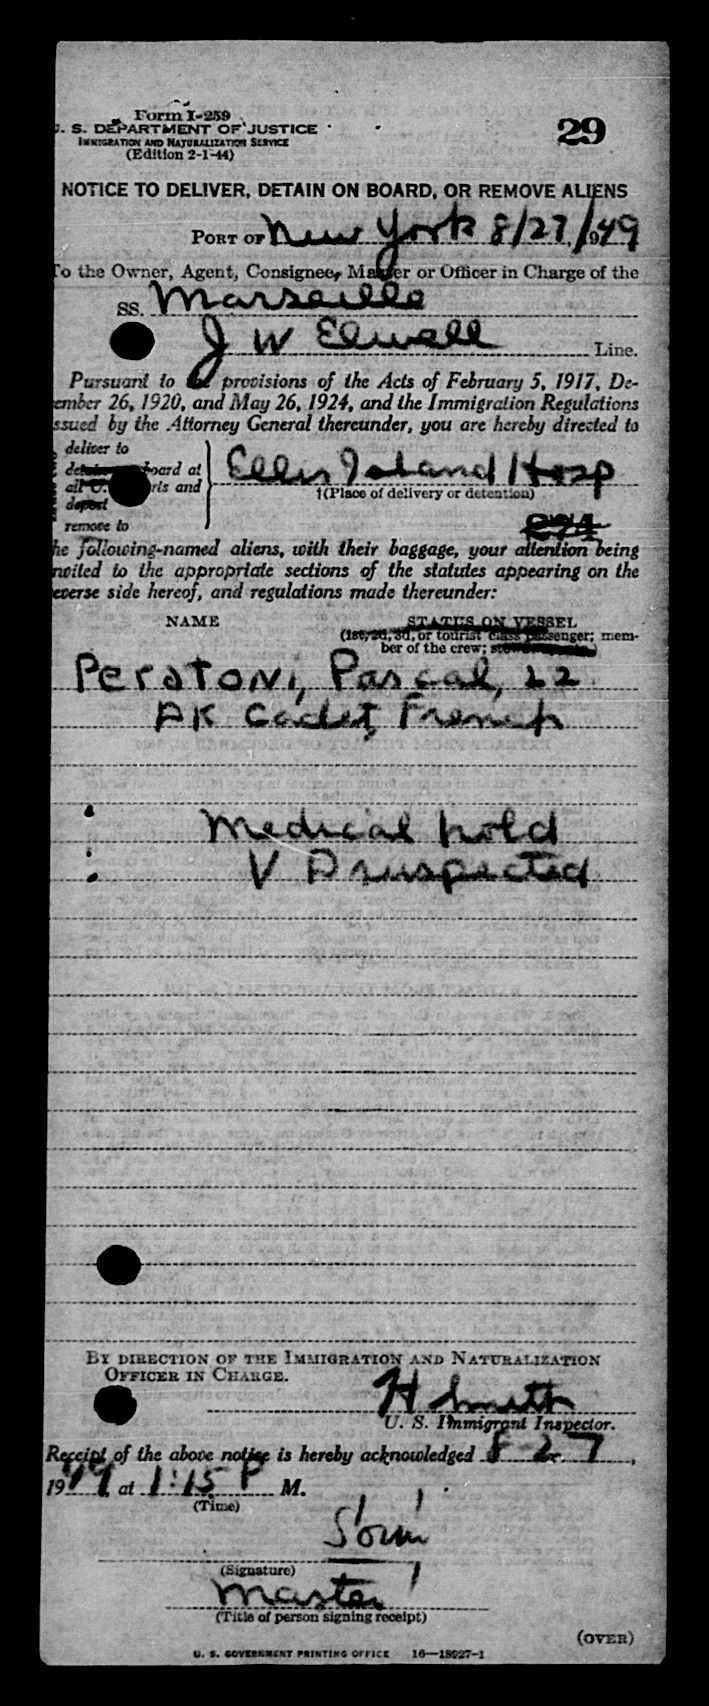 Form I-259
U. S. DEPARTMENT OF JUSTICE
IMMIGRATION AND NATURALIZATION SERVICE
(Edition 2-1-44)
29
NOTICE TO DELIVER, DETAIN ON BOARD, OR REMOVE ALIENS
PORT OF New York 8/27/, 1949
To the Owner, Agent, Consignee, Master or Officer in Charge of the
SS. Marseille
J W Elwell Line.
Pursuant to the provisions of the Acts of February 5, 1917, De-
cember 26, 1920, and May 26, 1924, and the Immigration Regulations
issued by the Attorney General thereunder, you are hereby directed to
deliver to
detain on board at
all U. ports and
deport
remove to
Ellis Island Hosp
†(Place of delivery or detention)
274
the following-named aliens, with their baggage, your attention being
invited to the appropriate sections of the statutes appearing on the
reverse side hereof, and regulations made thereunder:
NAME
STATUS ON VESSEL
(1st, 2d, 3d, or tourist class passenger; mem-
ber of the crew;
Peratoni, Pascal, 22
AK Cadet, French
Medical hold
V D suspected
BY DIRECTION OF THE IMMIGRATION AND NATURALIZATION
OFFICER IN CHARGE.
H Smith
U. S. Immigrant Inspector.
Receipt of the above notice is hereby acknowledged 8-27,
1949, at 1:15 P M.
(Time)
(Signature)
Master
(Title of person signing receipt)
(OVER)
U. S. GOVERNMENT PRINTING OFFICE 16—18927-1